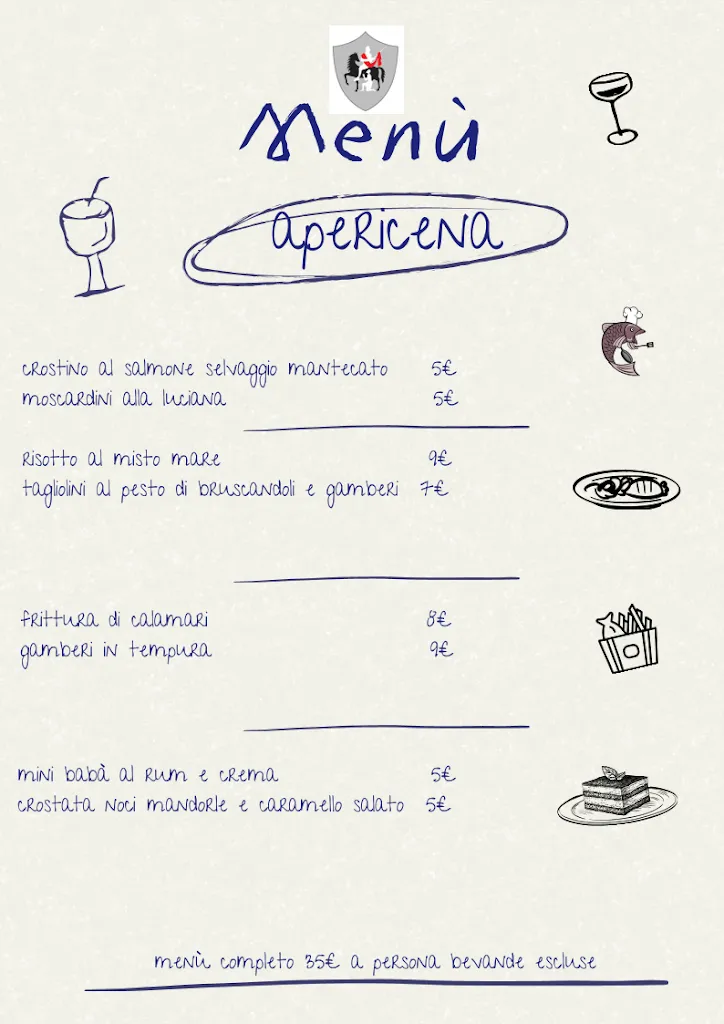 Menù
apericena
crostino al salmone selvaggio mantecato 5€
moscardini alla luciana 5€
risotto al misto mare 9€
tagliolini al pesto di bruscandoli e gamberi 7€
frittura di calamari 8€
gamberi in tempura 9€
mini babà al rum e crema 5€
crostata noci mandorle e caramello salato 5€
menù completo 35€ a persona bevande escluse